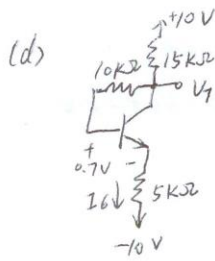 (d)
+10V
10kΩ
15kΩ
V7
+
0.7V -
I6↓
5kΩ
-10V